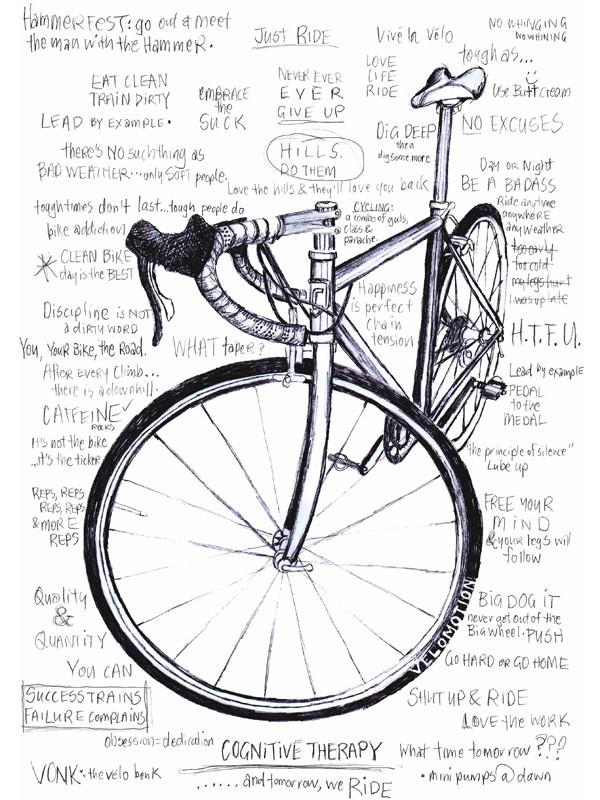 HAMMERFEST: go out & meet
the man with the HAMMER.
JUST RIDE
Vive Lн Velo
NO WHINGING
NO WHINING
tough as...
Use Butt Cream
LOVE
LIFE
RIDE
EAT CLEAN
TRAIN DIRTY
EMBRACE
the
SUCK
NEVER EVER
EVER
GIVE UP
LEAD BY EXAMPLE.
DIG DEEP
then
dig some more
NO EXCUSES
HILLS.
DO THEM
there's NO such thing as
BAD WEATHER...only SOFT people.
Love the hills & they'll love you back
Day or Night
BE A BADASS
Ride anytime
anywhere
any weather
too early
too cold
my legs hurt
I was up late
tough times don't last...tough people do
bike addiction
CYCLING:
a combo of guts,
class &
panache.
* CLEAN BIKE
day is the BEST
Happiness
is perfect
chain
tension
Discipline is NOT
a DIRTY WORD
H.T.F.U.
YOU, YOUR Bike, the Road.
WHAT taper?
AFTER EVERY Climb...
there is a downhill.
Lead by example
PEDAL
to the
MEDAL
CAFFEINE
ROCKS
It's not the bike
...it's the ticker
"the principle of silence"
Lube up
REPS, REPS
REPS, REPS
& MORE
REPS
FREE YOUR
MIND
& your legs will
follow
Quality
&
QUANTITY
VELOMOTION
BIG DOG IT
never get out of the
Big wheel. PUSH
YOU CAN
GO HARD OR GO HOME
SUCCESS TRAINS
FAILURE COMPLAINS
SHUT UP & RIDE
LOVE the WORK
obsession = dedication
COGNITIVE THERAPY
What time tomorrow ???
VONK: the velo bonk
......and tomorrow, we RIDE
• mini pumps @ dawn